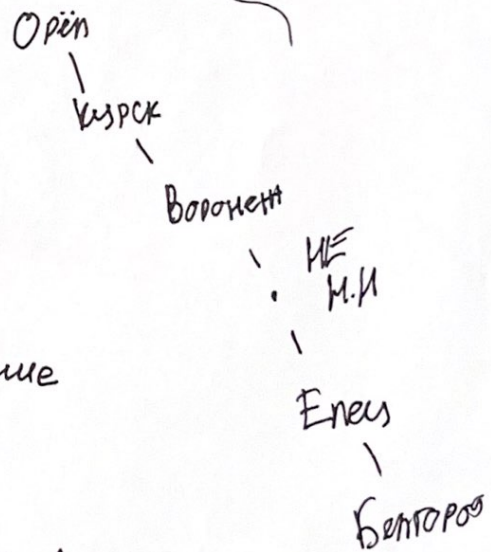 Орёл
Курск
Воронеж
НЕ
Н.Н
ше
Елец
Белгород